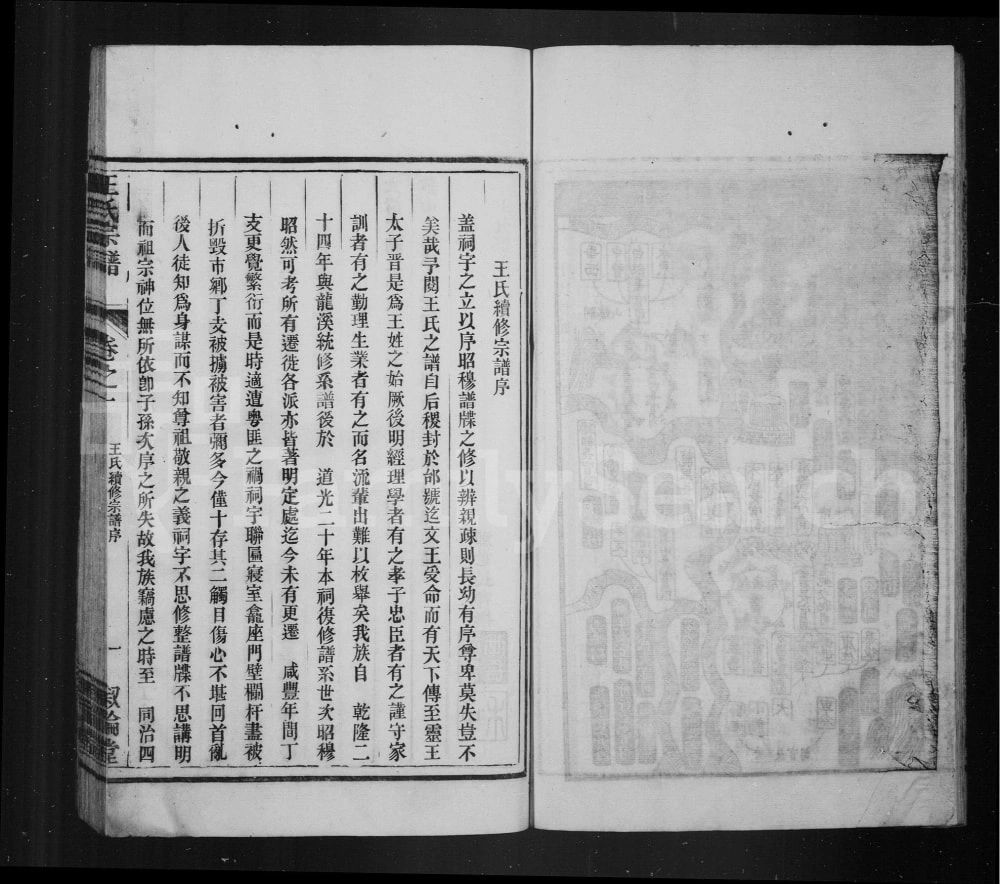 王氏續修宗譜序
盖祠宇之立以序昭穆譜牒之修以辨親疎則長幼有序尊卑莫失豈不
美哉予閱王氏之譜自后稷封於邰號迄文王受命而有天下傳至靈王
太子晋是爲王姓之始厥後明經理學者有之孝子忠臣者有之謹守家
訓者有之勤理生業者有之而名流輩出難以枚舉矣我族自 乾隆二
十四年與龍溪統修系譜後於 道光二十年本祠復修譜系世次昭穆
昭然可考所有遷徙各派亦皆著明定處迄今未有更遷 咸豐年間丁
支更覺繁衍而是時適遭粵匪之禍祠宇聯匾寢室龕座門壁欄杆盡被
折毀市鄉丁支被擄被害者彌多今僅十存其二觸目傷心不堪回首亂
後人徒知爲身謀而不知尊祖敬親之義祠宇不思修整譜牒不思講明
而祖宗神位無所依卽子孫次序之所失故我族竊慮之時至 同治四
王氏宗譜
卷之一
王氏續修宗譜序
一
叙倫堂
FamilySearch